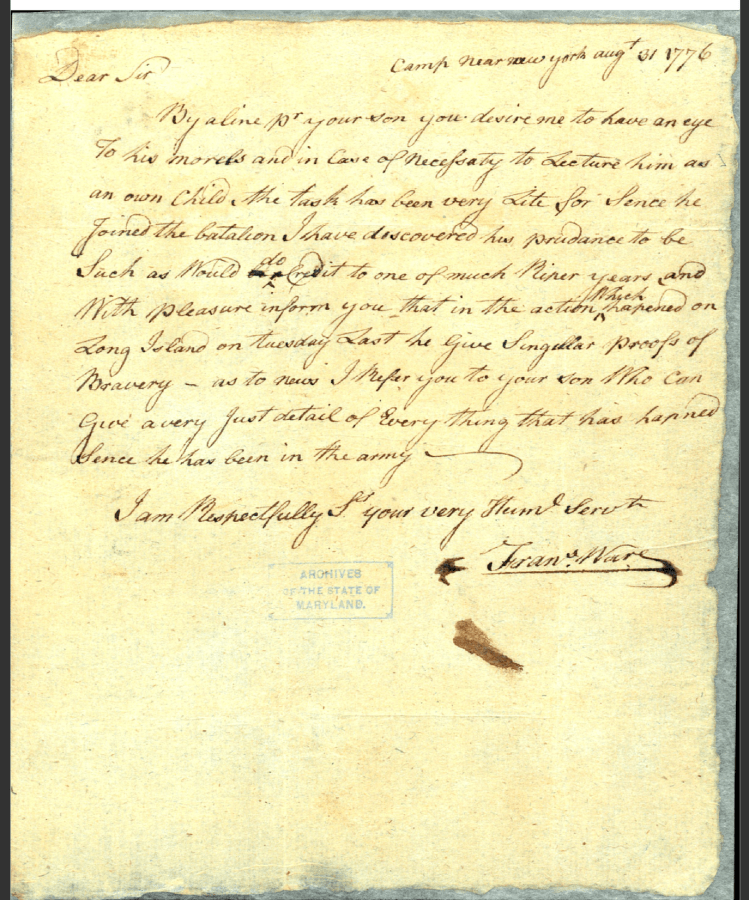 Camp near new york augt 31 1776
Dear Sir
By a line pr your son you desire me to have an eye
To his morels and in Case of necessaty to Lecture him as
an own Child the task has been very Lite for Sence he
Joined the batalion I have discovered his prudance to be
Such as Would do Credit to one of much Riper years and
With pleasure inform you that in the action Which hapened on
Long Island on tuesday Last he Give Singular proofs of
Bravery – as to news I Refer you to your son Who Can
Give a very Just detail of Every thing that has hapned
Sence he has been in the army
I am Respectfully Sr your very Humb Servt
Frans. Ware
ARCHIVES
OF THE STATE OF
MARYLAND.